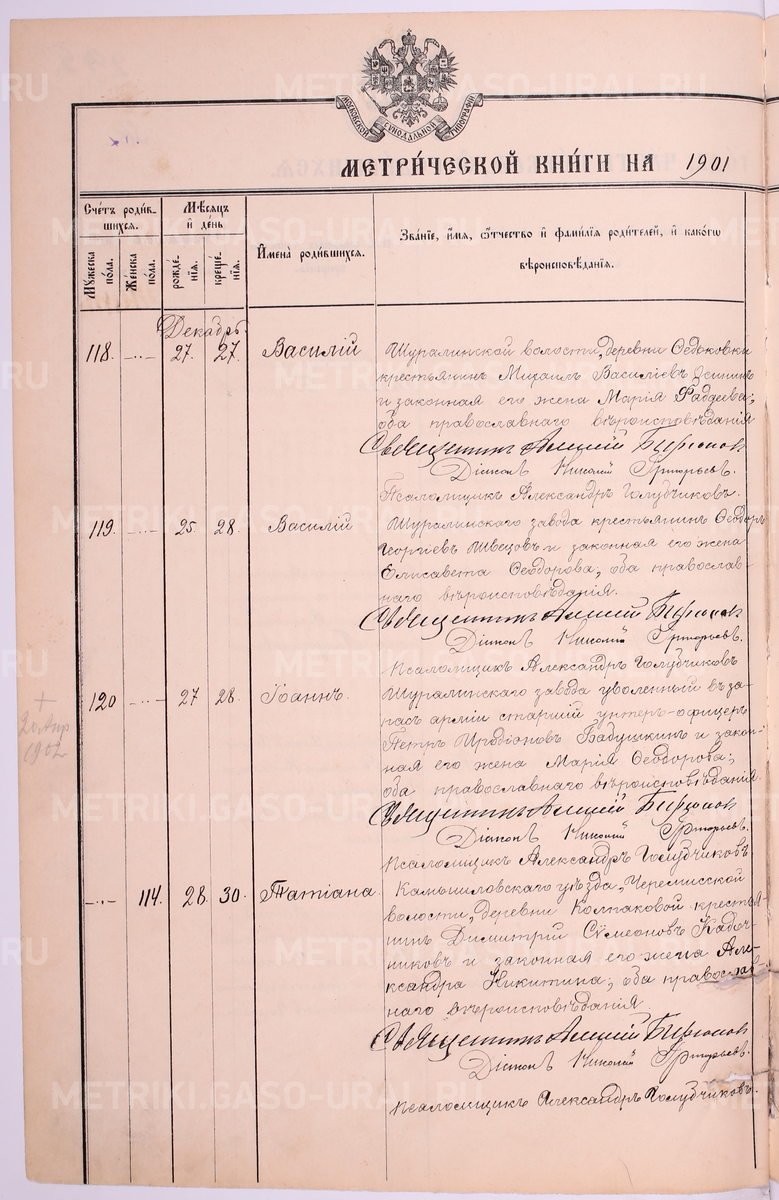 МОСКОВСКОЙ СУНОДАЛЬНОЙ ТИПОГРАФІИ
МЕТРИ́ЧЕСКОЙ КНИ́ГИ НА 1901
Сче́тъ роди́в-
шихсѧ.
Мꙋ́жеска по́ла.
Же́нска по́ла.
Мѣ́сѧцъ
и҆ день
рожде́-
нїѧ.
креще́-
нїѧ.
И҆мена̀ роди́вшихсѧ.
Зва́нїе, и҆́мѧ, ѻ҆́тчество и҆ фами́лїѧ роди́телей, и҆ како́гѡ
вѣроисповѣ́данїѧ.
Декабрь
118. -„- 27. 27. Василій
Шуралинской волости, деревни Ѳедьковки
крестьянинъ Михаилъ Василіевъ
и законная его жена Марія Фаддеева;
оба православнаго вѣроисповѣданія
Священникъ Алексій Бирюков
Діаконъ Николай Григорьевъ.
Псаломщикъ Александръ Голубчиковъ.
119. -„- 25. 28. Василій
Шуралинскаго завода крестьянинъ Ѳеодоръ
Георгіевъ Швецовъ и законная его жена
Елисавета Ѳеодорова, оба православ-
наго вѣроисповѣданія.
Священникъ Алексій Бирюков
Діаконъ Николай Григорьевъ.
Псаломщикъ Александръ Голубчиковъ
120 -„- 27 28. Іоаннъ.
+
20 Апр
1902
Шуралинскаго завода уволенный въ за-
пасъ арміи старшій унтеръ-офицеръ
Петръ Иродіоновъ Бабушкинъ и закон-
ная его жена Марія Ѳеодорова;
оба православнаго вѣроисповѣданія.
Священникъ Алексій Бирюков
Діаконъ Николай Григорьевъ.
Псаломщикъ Александръ Голубчиковъ
-„- 114. 28. 30. Татіана.
Камышловскаго уѣзда, Черемисской
волости, деревни Колпаковой крестья-
нинъ Димитрій Сѵмеоновъ Кадоч-
никовъ и законная его жена Але-
ксандра Никитина; оба православ-
наго вѣроисповѣданія.
Священникъ Алексій Бирюков
Діаконъ Николай Григорьевъ.
Псаломщикъ Александръ Голубчиковъ.
METRIKI.GASO-URAL.RU